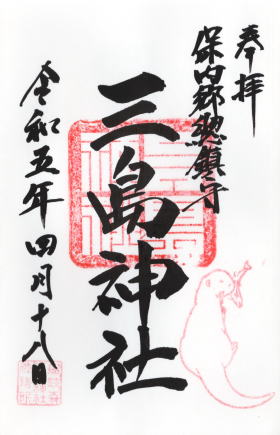 奉拝
保内郷総鎮守
三島神社
令和五年四月十八日